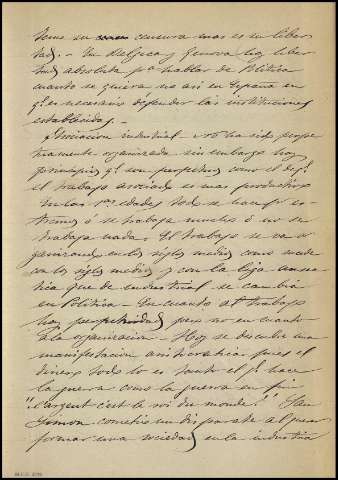 su censura mas es su liber
tad. - En Belgica y Genova hay liber
tad absoluta pa hablar de Politica
cuando se quiera no asi en España en
q.e es necesario defender las instituciones
establecidas -
Asociacion industrial - No ha sido
organizada sin embargo hay
principios q.e son como el de q.e
el trabajo asociado es mas productivo
En las 1as edades todo se hace p.r es
tremos ó se trabaja mucho ó no se
trabaja nada. El trabajo se va or
ganizando en los siglos medios como
en los siglos medios y con la liga
tica que de industrial se cambia
en Politica - En cuanto al trabajo
hay pero no en cuanto
á la organizacion - Hoy se descubre una
manifestacion aristocratica pues el
dinero todo lo es tanto el q.e hace
la guerra como la guerra en fin
"l'argent c'est le roi du monde." San
Simon cometió un disparate al querer
formar una sociedad en la industria